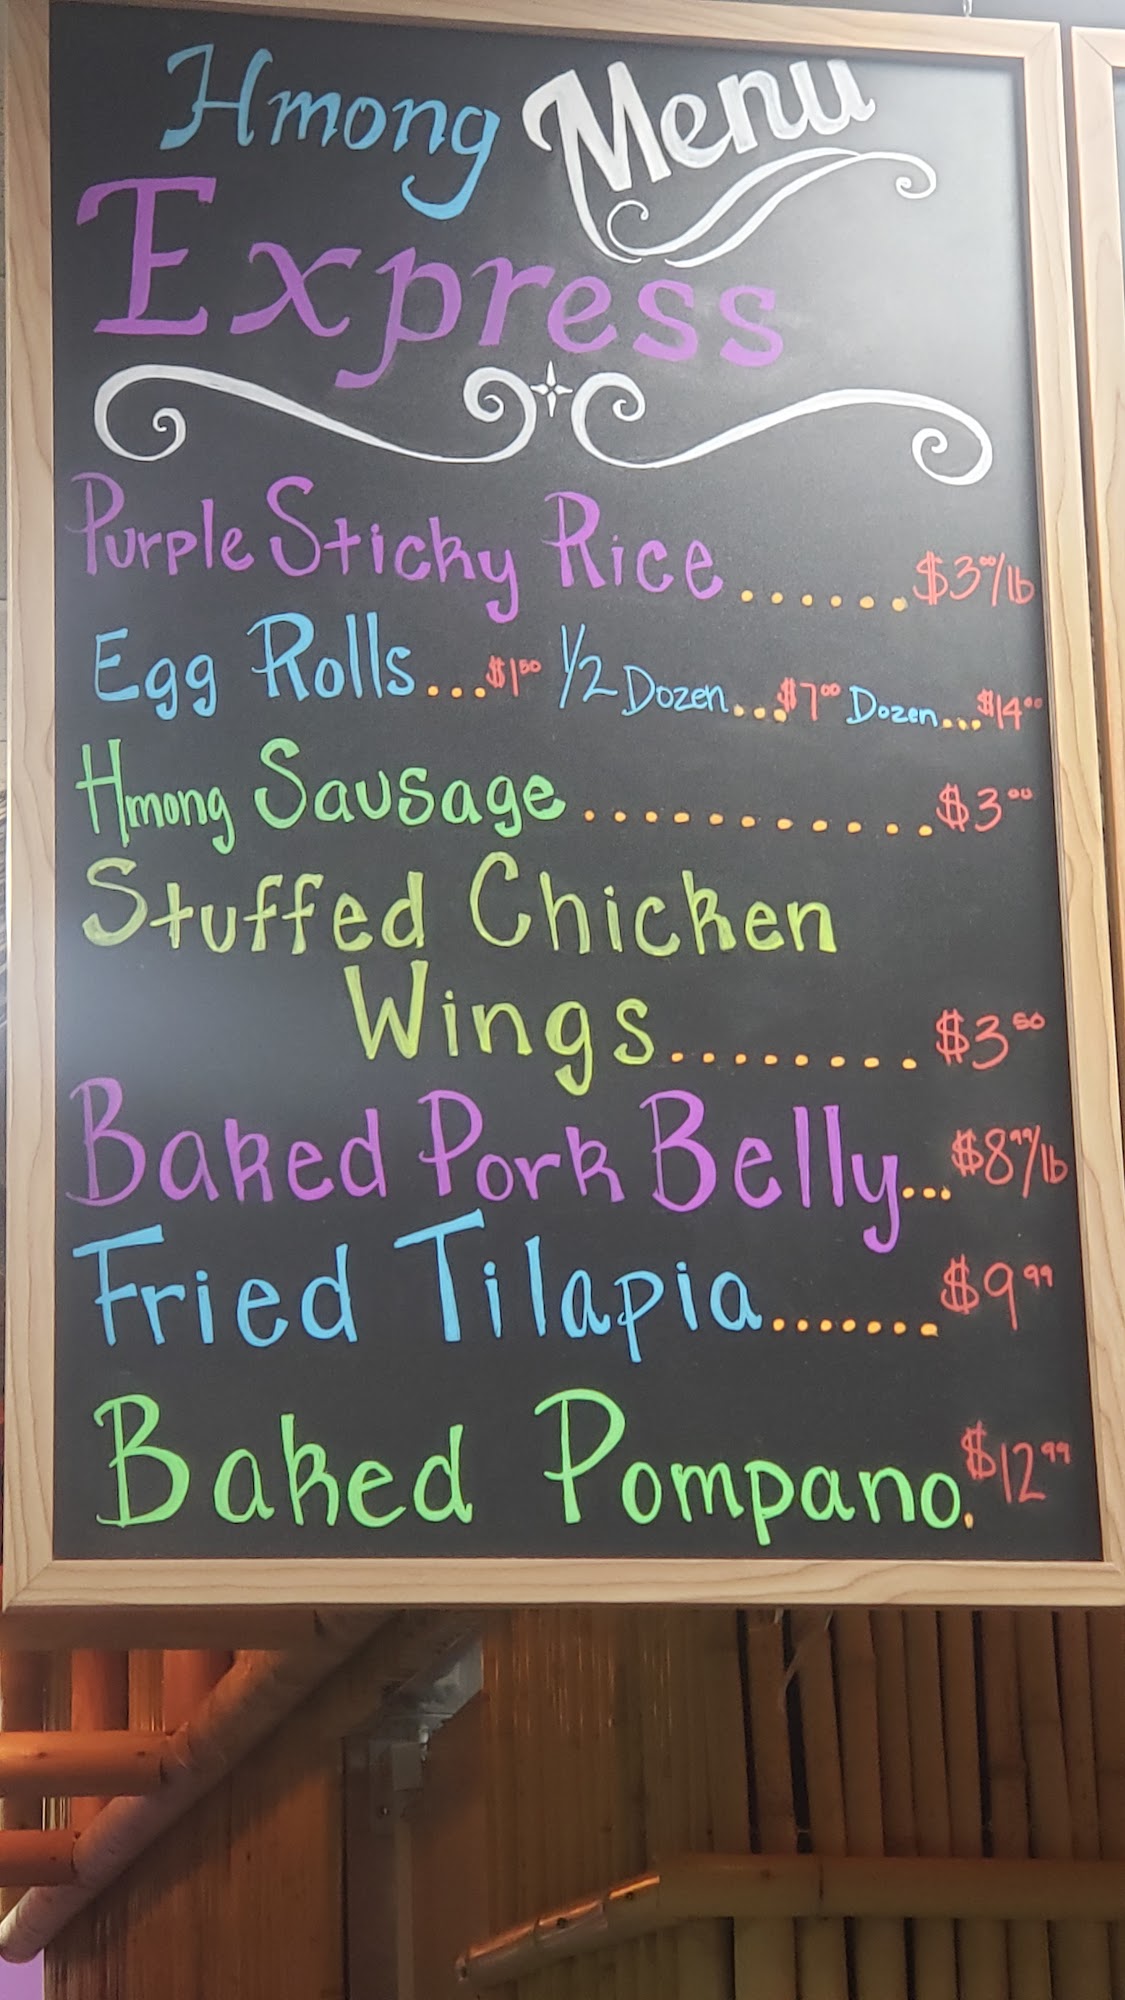 Hmong Menu
Express
Purple Sticky Rice.......$3⁰⁰/lb
Egg Rolls...$1⁵⁰ 1/2 Dozen...$7⁰⁰ Dozen...$14⁰⁰
Hmong Sausage............$3⁰⁰
Stuffed Chicken
Wings........$3⁵⁰
Baked Pork Belly...$8⁹⁹/lb
Fried Tilapia.......$9⁹⁹
Baked Pompano.$12⁹⁹